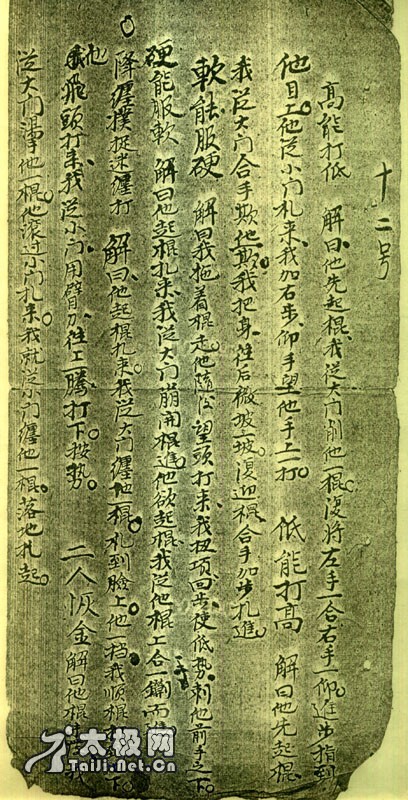 十二号
高能打低 解曰他先起棍我从大门削他一棍復将左手一合右手一仰進步指到
他目上他从小门扎来我加右步仰手望他手上一打 低能打高 解曰他先起棍
我从大门合手欺他欺我把身往后微坡一坡復迎棍合手加步扎進
軟能服硬 解曰我拖着棍走他隨後望頭打来我扭項回步使低势刺他前手之下
硬能服軟 解曰他起棍扎来我从大门崩开棍進他欲起棍我从他棍上合一鎙而進
降纏撲捉 纏打 解曰他起棍扎来我从大门纏他一棍扎到臉上他一挡我順棍 下
他 飛頭打来我从小门用臂力往上一騰打下按势 二人恢金 解曰他棍 我
从大门 他一棍他滚过小门扎来我就从小门纏他一棍落地扎起
太极网
Taiji.Net.Cn